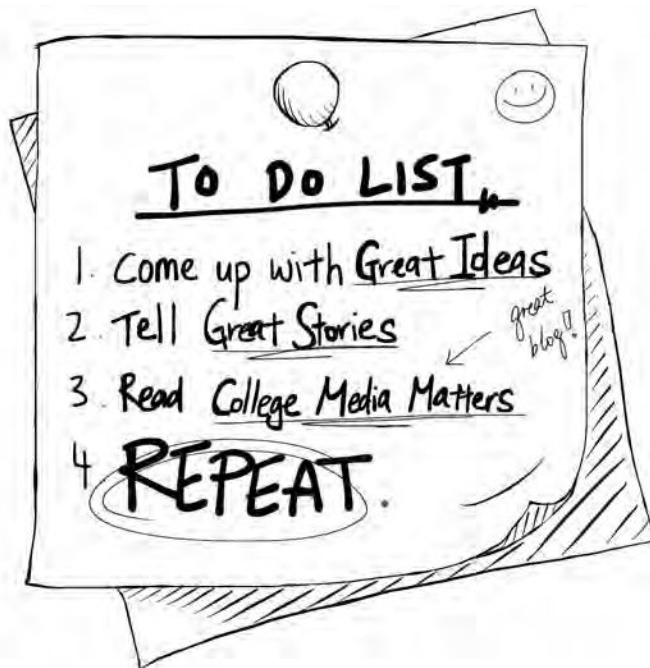 TO DO LIST
1. Come up with Great Ideas
2. Tell Great Stories
great
blog!!
3. Read College Media Matters
4 REPEAT.